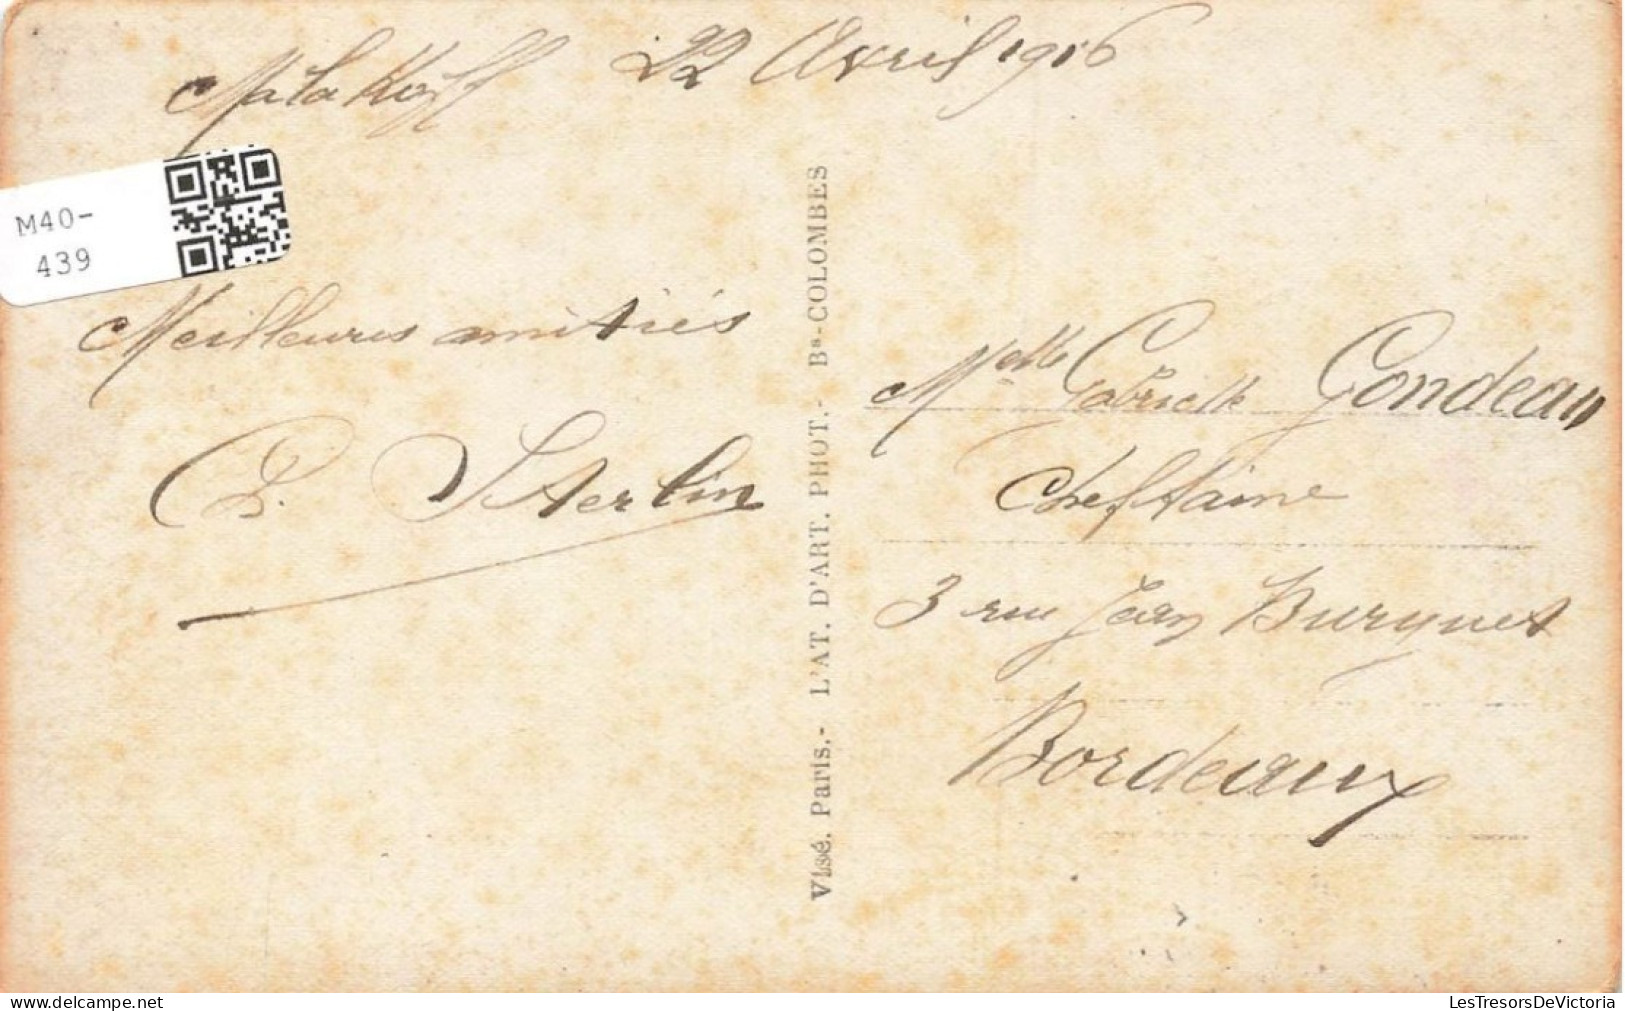 Malakoff 22 Avril 1916
M40-
439
Meilleures amitiés
P. Sterlin
Visé. Paris.- L'AT. D'ART. PHOT.- Bs- COLOMBES
Melle Gabrielle Gondeau
Cheftaine
3 rue Jean Burguet
Bordeaux
delcampe.net
LesTresorsDeVictoria